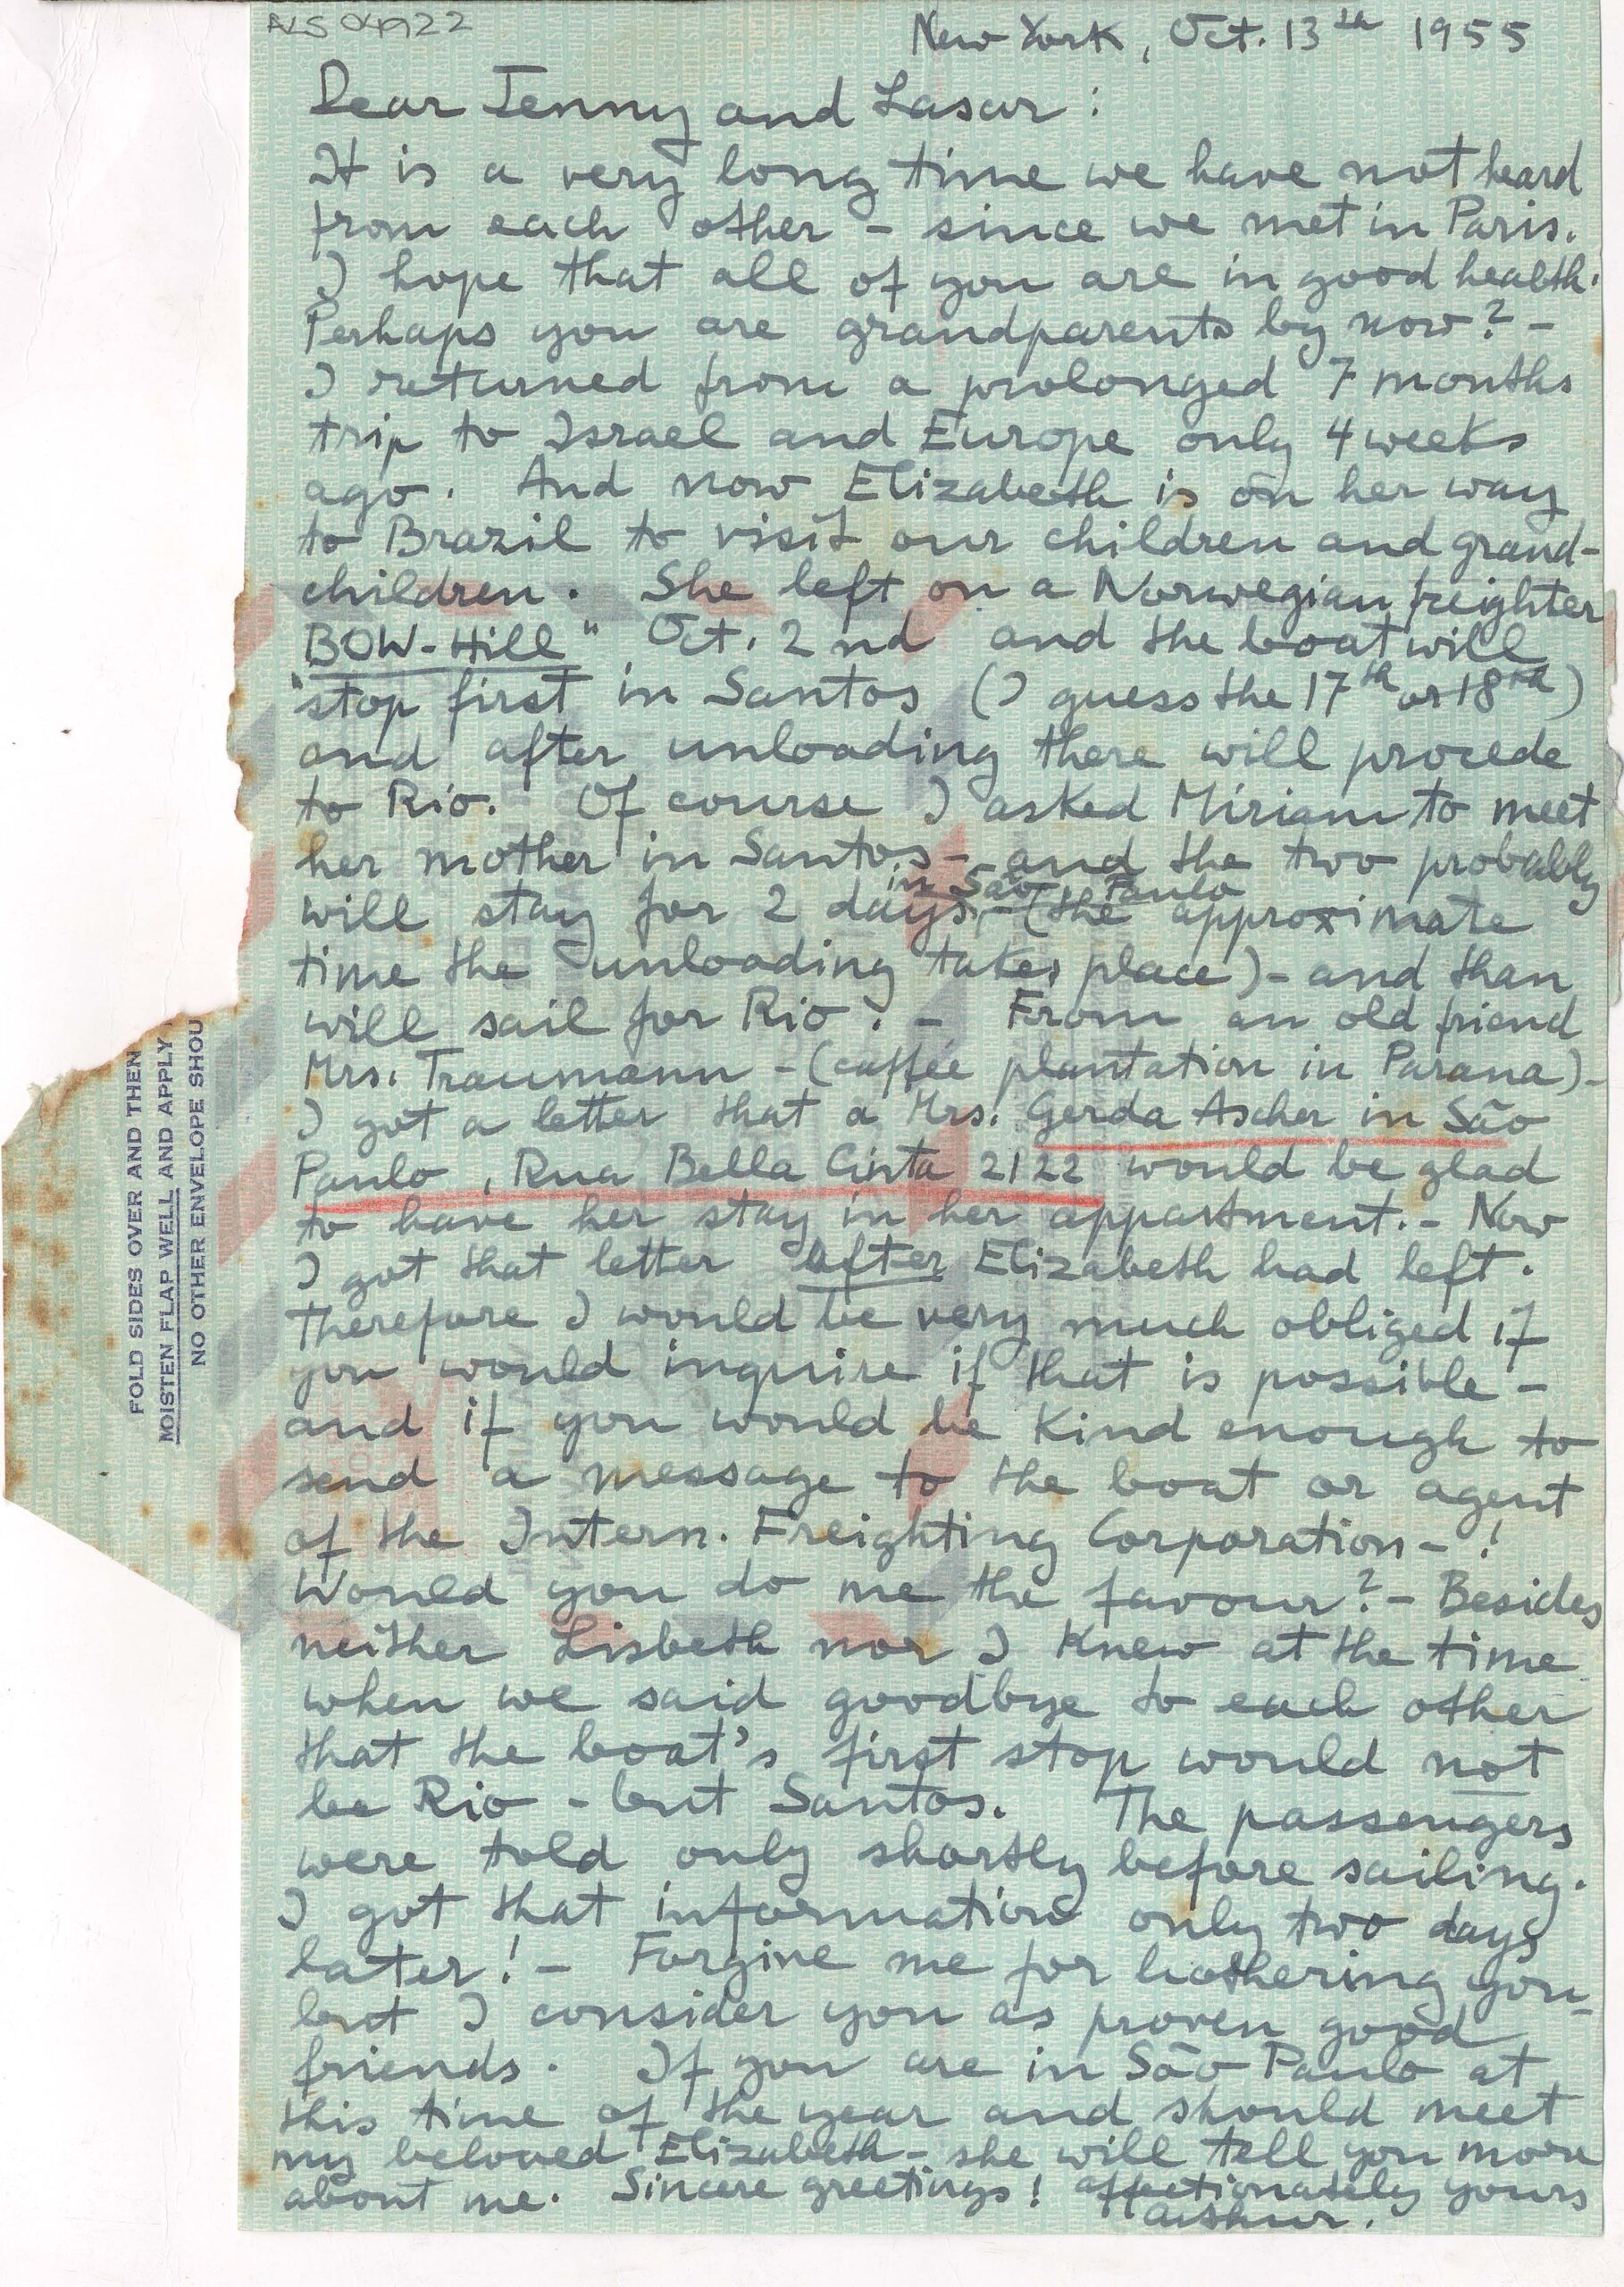 ALS 04922
New York, Oct. 13th 1955
Dear Jenny and Lasar:
It is a very long time we have not heard
from each other - since we met in Paris.
I hope that all of you are in good health.
Perhaps you are grandparents by now? -
I returned from a prolonged 7 months
trip to Israel and Europe only 4 weeks
ago. And now Elizabeth is on her way
to Brazil to visit our children and grand-
children. She left on a Norwegian freighter
"BOW-Hill" Oct. 2nd and the boat will
stop first in Santos (I guess the 17th or 18th)
and after unloading there will procede
to Rio. Of course I asked Miriam to meet
her mother in Santos - and the two probably
in São Paulo
will stay for 2 days, - (the approximate
time the unloading takes place) - and than
will sail for Rio. - From an old friend
Mrs. Traumann - (caffée plantation in Parana) -
I got a letter that a Mrs. Gerda Ascher in São
Paulo, Rua Bella Cinta 2122 would be glad
to have her stay in her appartment. - Now
I got that letter after Elizabeth had left.
Therefore I would be very much obliged if
you would inquire if that is possible -
and if you would be kind enough to
send a message to the boat or agent
of the Intern. Freighting Corporation - !
Would you do me the favour? - Besides
neither Lisbeth nor I knew at the time
when we said goodbye to each other
that the boat's first stop would not
be Rio - but Santos. The passengers
were told only shortly before sailing.
I got that information only two days
later! - Forgive me for bothering you -
but I consider you as proven good
friends. If you are in São Paulo at
this time of the year and should meet
my beloved Elizabeth - she will tell you more
about me. Sincere greetings! affectionately yours
Arthur.
FOLD SIDES OVER AND THEN
MOISTEN FLAP WELL AND APPLY
NO OTHER ENVELOPE SHOU